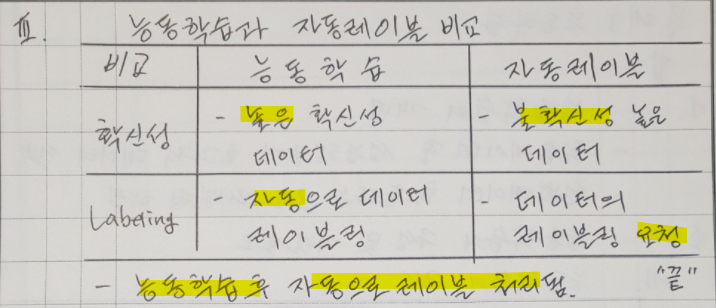 Ⅲ. 능동학습과 자동레이블 비교
비교 능동학습 자동레이블
확신성 - 높은 확신성 데이터 - 불확신성 높은 데이터
Labeling - 자동으로 데이터 레이블링 - 데이터의 레이블링 요청
- 능동학습 후 자동으로 레이블 처리됨. "끝"